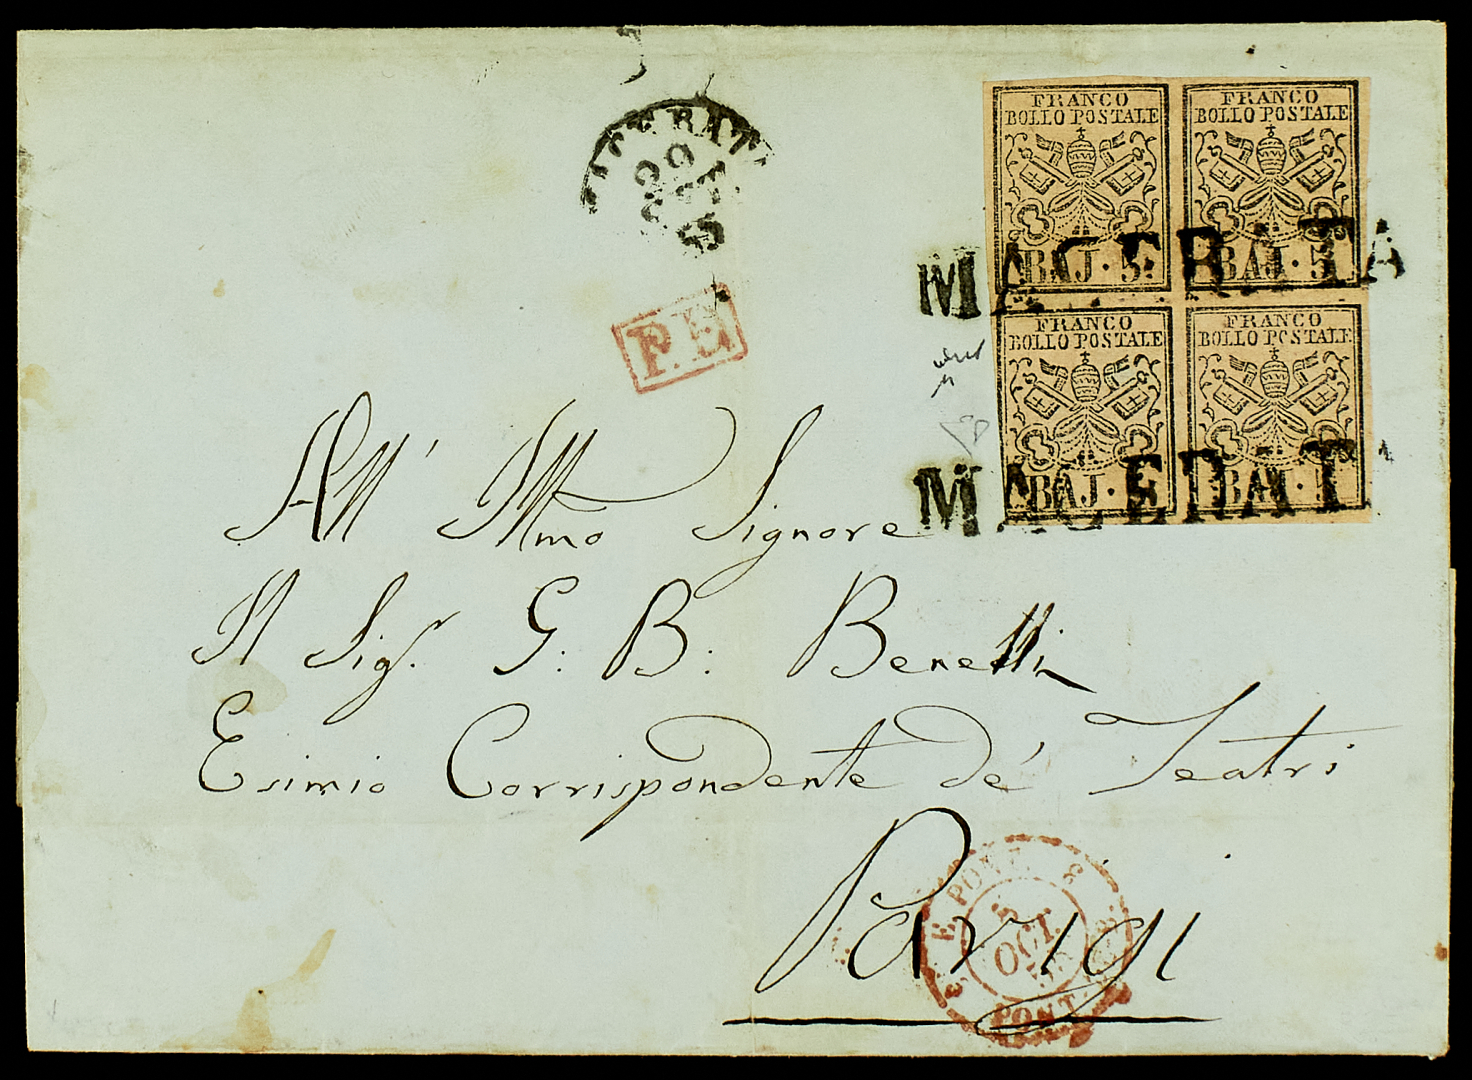 MACERATA
FRANCO
BOLLO POSTALE
BAJ · 5
FRANCO
BOLLO POSTALE
BAJ · 5
MACERATA
FRANCO
BOLLO POSTALE
BAJ ·
FRANCO
BOLLO POSTALE
BAJ ·
MACERAT
P.E
All' Illmo Signore
Il Sigr. G: B: Benelli
Esimio Corrispondente de' Teatri
Parigi
E. PONT. 
5
OCT.
PONT.